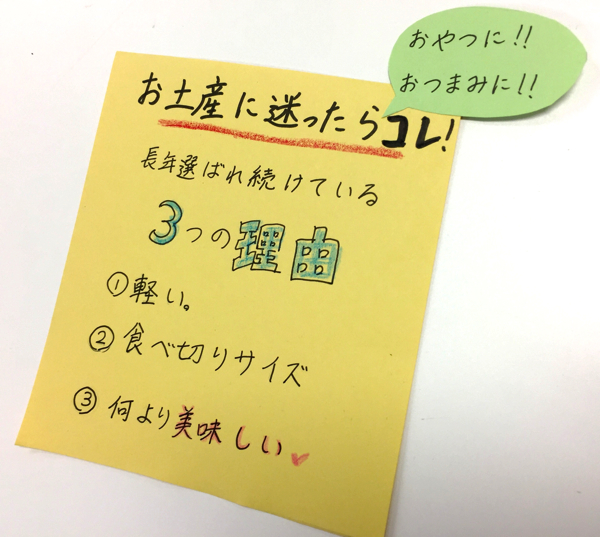 おやつに!!
おつまみに!!
お土産に迷ったらコレ!
長年選ばれ続けている
3つの理由
①軽い。
②食べ切りサイズ
③何より美味しい